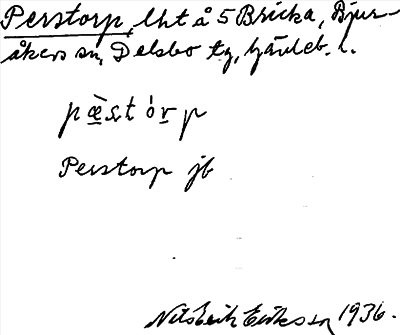 Perstorp, lht å 5 Bricka, Bjur-
åkers sn, Delsbo tg, Gävleb. l.
pæ̀ʂt ór p
Perstorp jb
Nils Erik Eriksson 1936.